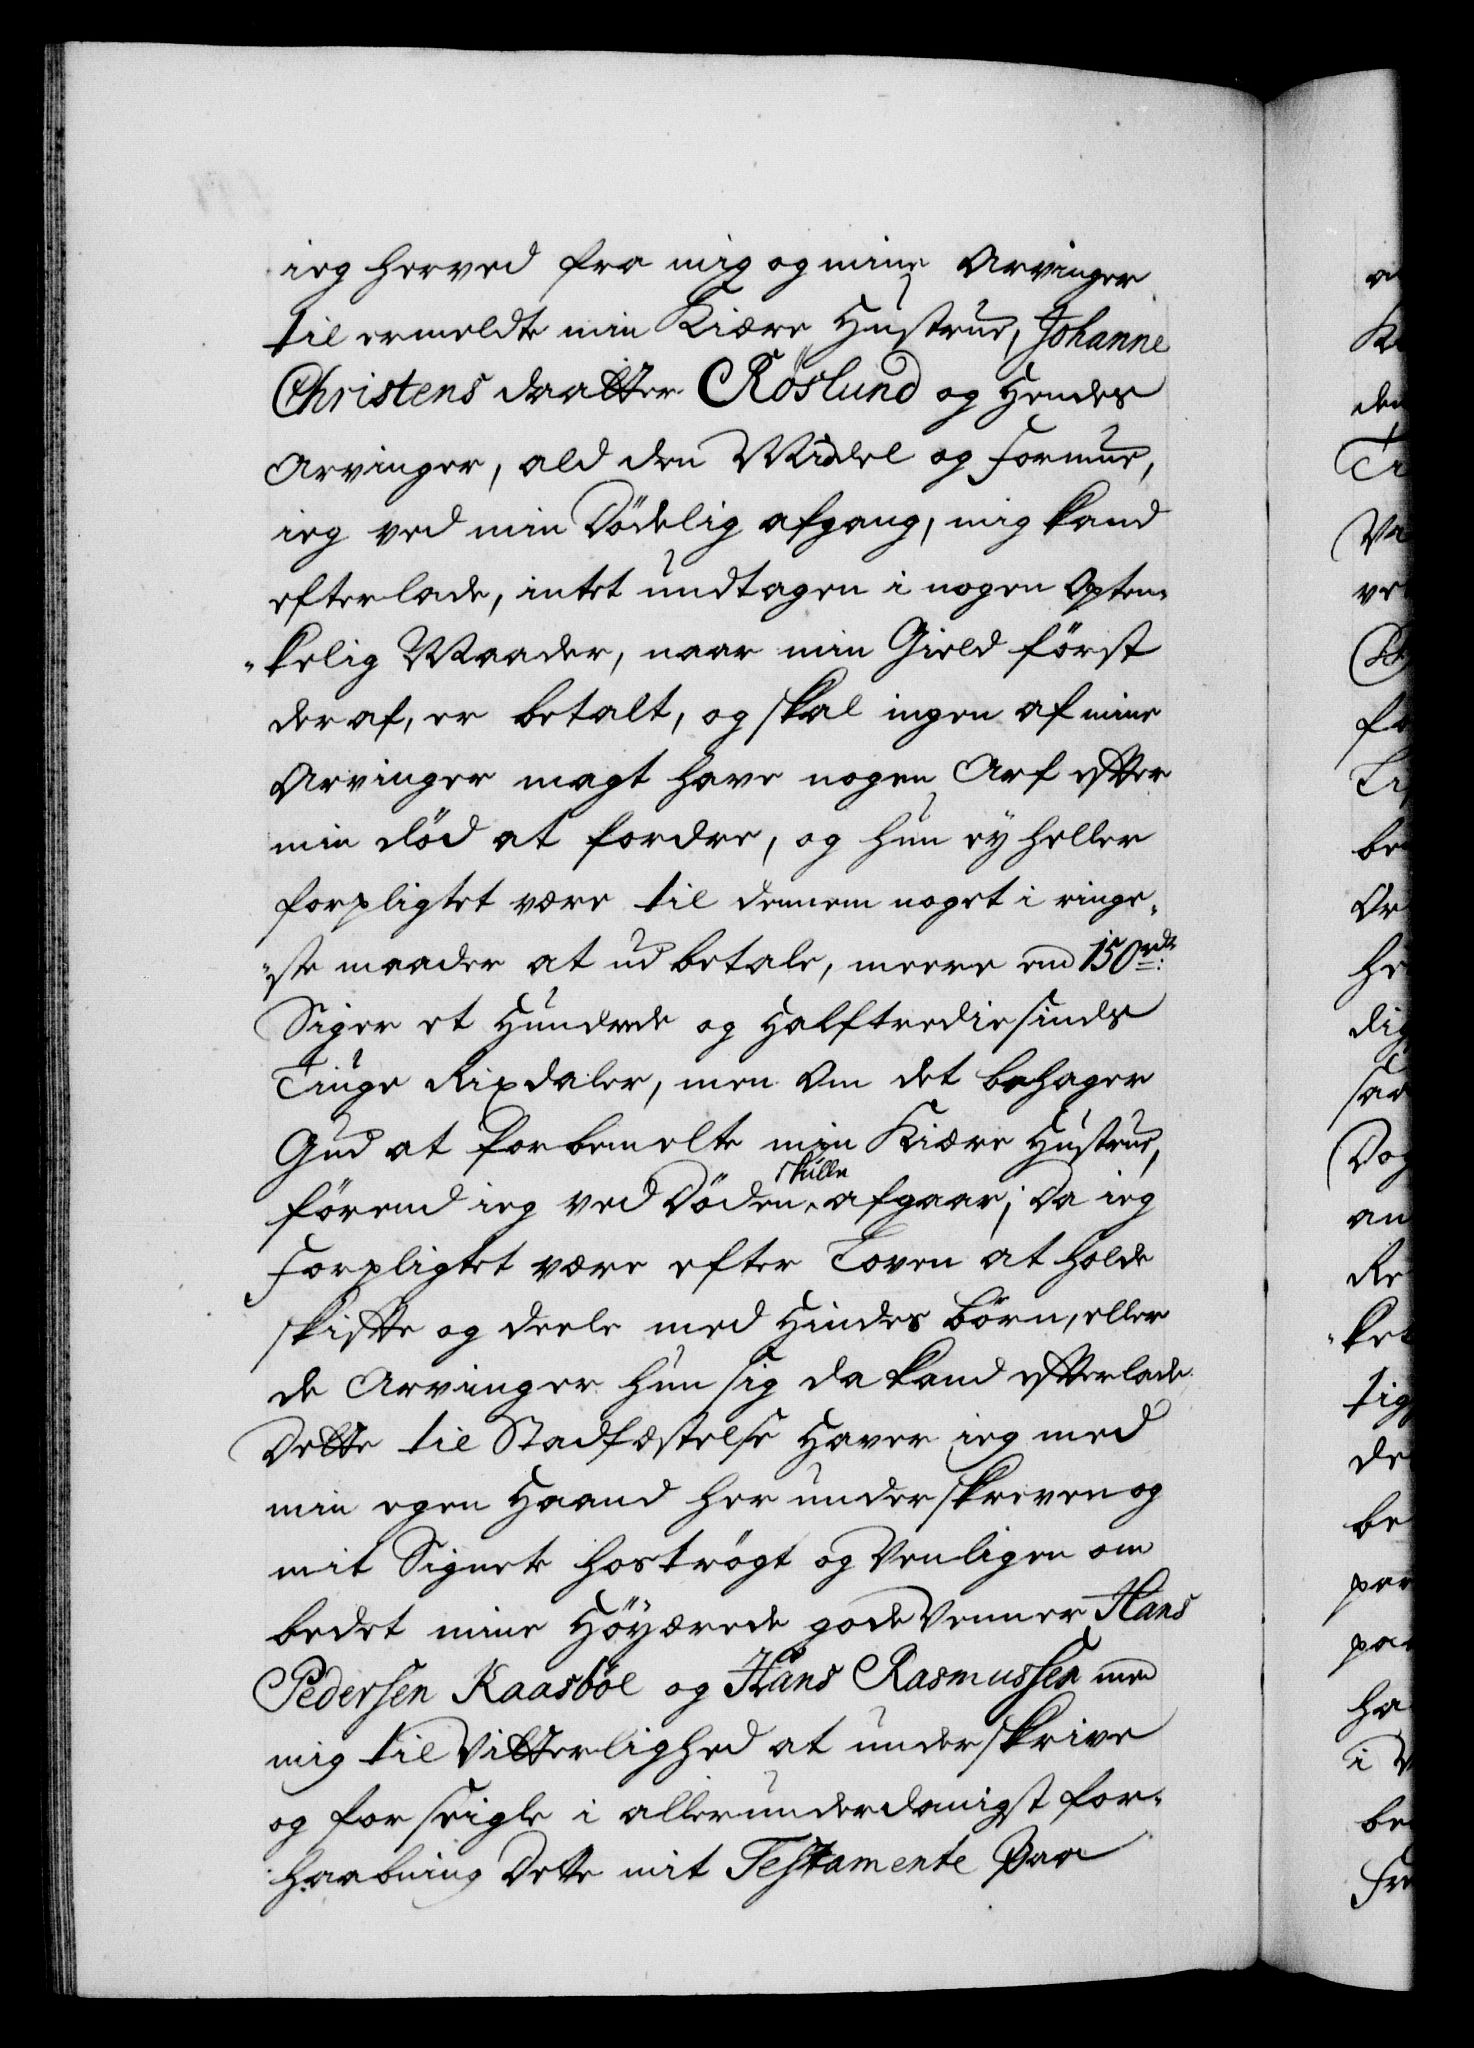 ieg herved fra mig og mine Arvinger
til ermeldte min Kiære Hustrue, Johanne
Christens daatter Röslund og Hendes
Arvinger, ald den Middel og Formue,
ieg ved min Dödelig afgang, mig kand
efterlade, intet undtagen i nogen Opten-
"kelig Maader, naar min Gield först
deraf, er betalt, og skal ingen af mine
Arvinger magt have nogen Arf efter
min död at fordre, og hun ey heller
forpligtet være til dennem noget i ringe-
"ste maader at udbetale, meere end 150 rdr:
Siger et Hundrede og Halftredie sinds
Tiuge Rixdaler, men Om det behager
Gud at forbemelte min Kiære Hustrue,
förend ieg ved Döden skulle afgaar; Da ieg
Forpligtet være efter Loven at holde
skifte og deele med Hindes Börn, eller
de Arvinger hun sig da kand efterlade.
Dette til Stadfæstelse Haver ieg med
min egen Haand her underskreven og
mit Signete hoströgt og Venligen om
bedet mine Höyærede gode Venner Hans
Pedersen Kaasböl og Hans Rasmussen med
mig til Vitterlighed at underskrive
og forseigle i allerunderdanigst for-
haabning Dette mit Testamente Paa